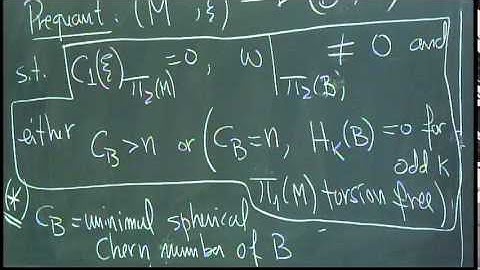 Prequant: (M, ξ)
s.t. C₁(ξ)|π₂(M) = 0, ω|π₂(B) ≠ 0 and
either C_B > n or (C_B = n, H_K(B) = 0 for
odd K
π₁(M) torsion free)
(*) C_B = minimal spherical
Chern number of B